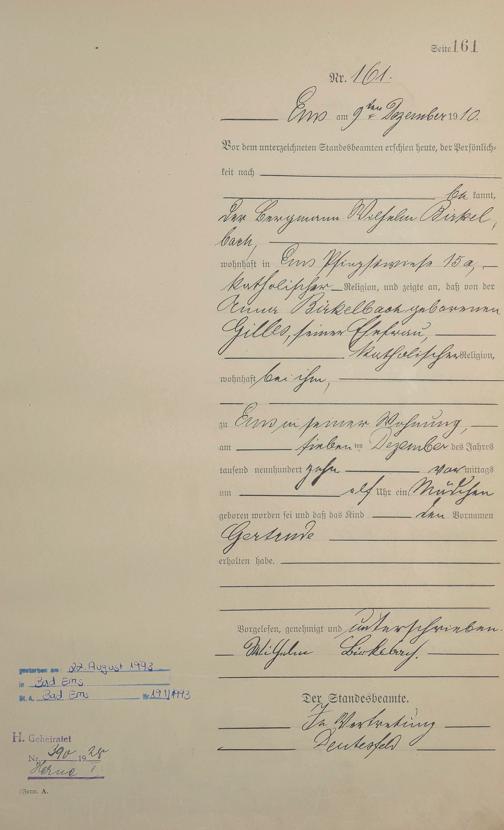 Seite 161
Nr. 161.
Ems am 9ten Dezember 1910.
Vor dem unterzeichneten Standesbeamten erschien heute, der Persönlich-
keit nach
be kannt,
der Bergmann Wilhelm Birkel,
bach,
wohnhaft in Ems Pfingstwiese 15a,
katholischer Religion, und zeigte an, daß von der
Anna Birkelbach geborenen
Gilles, seiner Ehefrau,
katholischer Religion,
wohnhaft bei ihm,
zu Ems in seiner Wohnung,
am sieben ten Dezember des Jahres
tausend neunhundert zehn vor mittags
um elf Uhr ein Mädchen
geboren worden sei und daß das Kind den Vornamen
Gertrude
erhalten habe.
Vorgelesen, genehmigt und unterschrieben.
Wilhelm Birkelbach.
Der Standesbeamte.
In Vertretung
gestorben am 22. August 1993
in Bad Ems
St. A. Bad Ems Nr. 191/1993
H. Geheiratet
Nr. 390 1928
Herne I
Form. A.